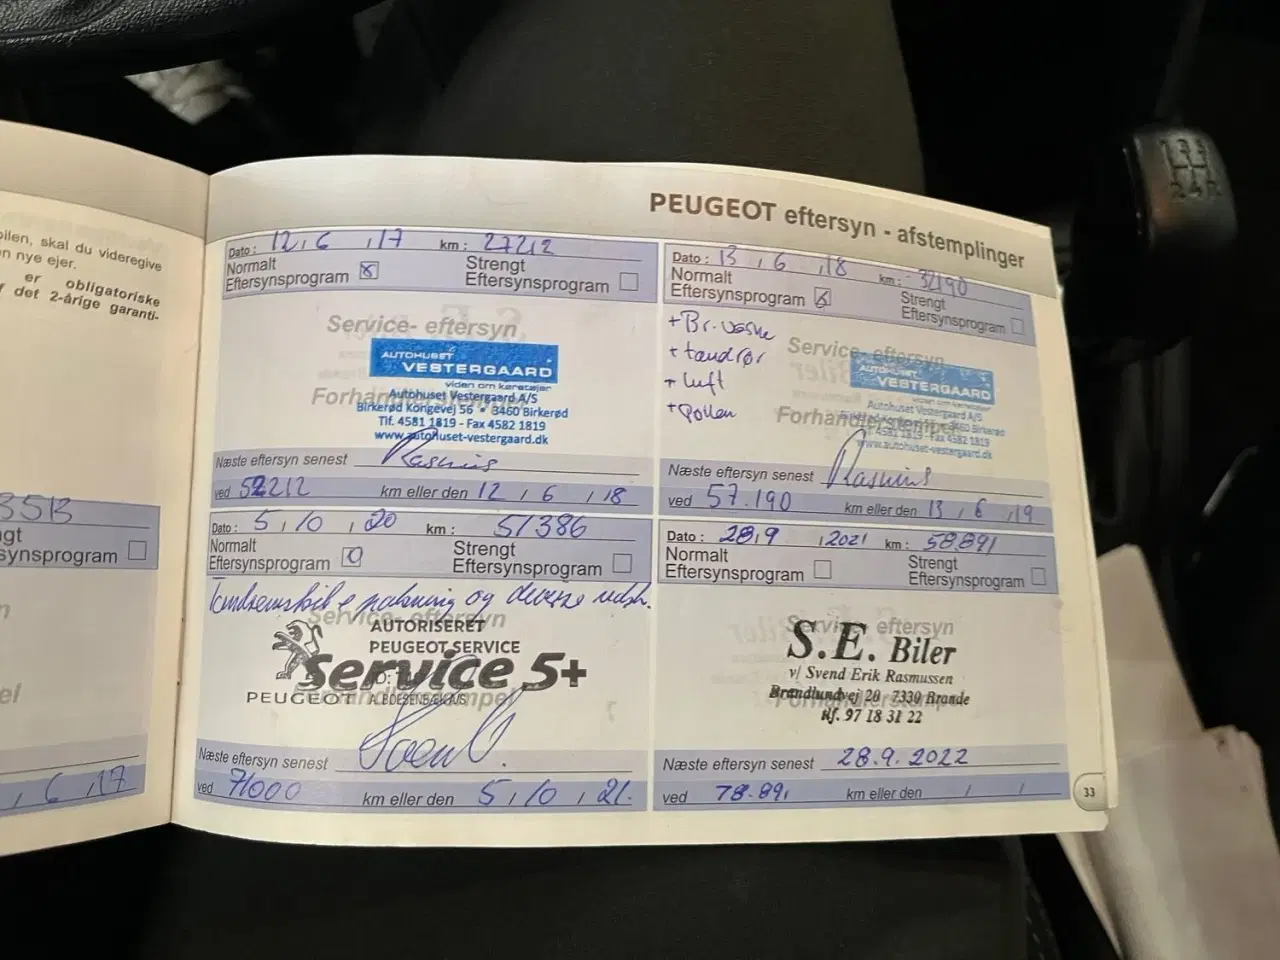 bilen, skal du videregive
en nye ejer.
er obligatoriske
f det 2-årige garanti-
synsprogram
6 , 17
PEUGEOT eftersyn - afstemplinger
Dato : 12 , 6 , 17 km : 27212
Normalt
Eftersynsprogram
Strengt
Eftersynsprogram
Service- eftersyn
AUTOHUSET
VESTERGAARD
viden om køretøjer
Forhandlerstempel
Autohuset Vestergaard A/S
Birkerød Kongevej 56 • 3460 Birkerød
Tlf. 4581 1819 - Fax 4582 1819
www.autohuset-vestergaard.dk
Næste eftersyn senest Rasmus
ved 52212 km eller den 12 , 6 , 18
Dato : 13 , 6 , 18 km : 32190
Normalt
Eftersynsprogram
Strengt
Eftersynsprogram
+ Br. væske
+ tændrør
+ Luft
+ Pollen
Service- eftersyn
AUTOHUSET
VESTERGAARD
Forhandlerstempel
Autohuset Vestergaard A/S
3460 Birkerød
Tlf. 4581 1819 - Fax 4582 1819
www.autohuset-vestergaard.dk
Næste eftersyn senest Rasmus
ved 57.190 km eller den 13 , 6 , 19
Dato : 5 , 10 , 20 km : 51386
Normalt
Eftersynsprogram
Strengt
Eftersynsprogram
og diverse udsk.
Service- eftersyn
AUTORISERET
PEUGEOT SERVICE
Service 5+
PEUGEOT
Forhandlerstempel
Næste eftersyn senest
ved 71000 km eller den 5 , 10 , 21.
Dato : 28,9 ,2021 km : 58.891
Normalt
Eftersynsprogram
Strengt
Eftersynsprogram
Service- eftersyn
S.E. Biler
v/ Svend Erik Rasmussen
Forhandlerstempel
Brandlundvej 20 7330 Brande
tlf. 97 18 31 22
Næste eftersyn senest 28.9.2022
ved 78.891 km eller den / /
33